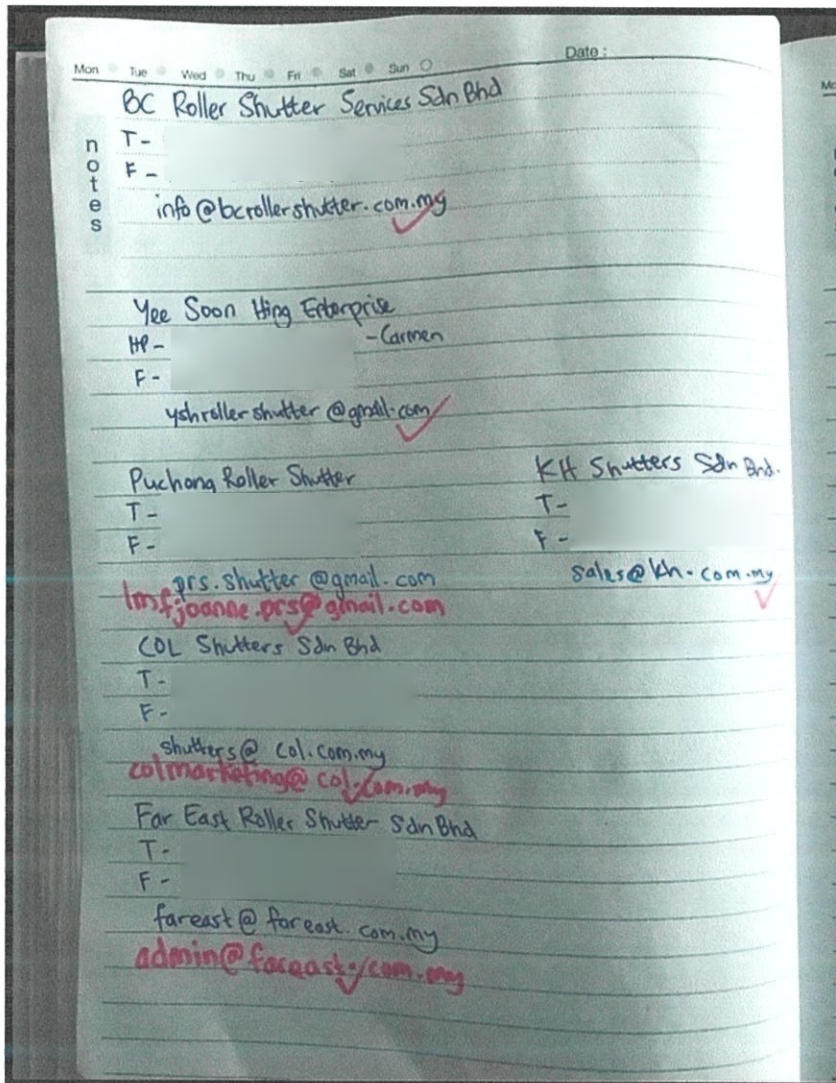 Mon Tue Wed Thu Fri Sat Sun
Date :
notes
BC Roller Shutter Services Sdn Bhd
T -
F -
info@bcrollershutter.com.my
Yee Soon Hing Enterprise
HP - - Carmen
F -
yshrollershutter@gmail.com
Puchong Roller Shutter
T -
F -
prs.shutter@gmail.com
lmfjoanne.prs@gmail.com
KH Shutters Sdn Bhd.
T -
F -
sales@kh-com.my
COL Shutters Sdn Bhd
T -
F -
shutters@col.com.my
colmarketing@col.com.my
Far East Roller Shutter Sdn Bhd
T -
F -
fareast@fareast.com.my
admin@fareast.com.my